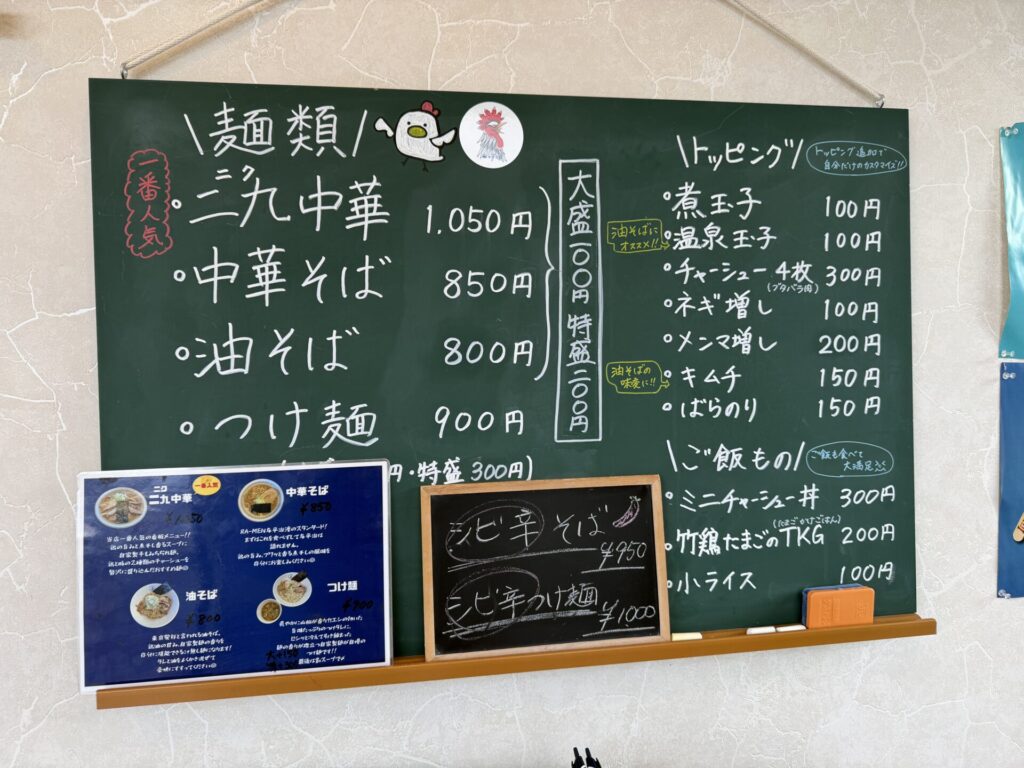 \麺類/
一番人気
ニク
・二九中華 1.050円
・中華そば 850円
・油そば 800円
・つけ麺 900円
円・特盛300円)
大盛一〇〇円 特盛二〇〇円
\トッピング/
トッピング追加で
自分だけのカスタマイズ!!
・煮玉子 100円
油そばに
オススメ!!
・温泉玉子 100円
・チャーシュー4枚 300円
(ブタバラ肉)
・ネギ増し 100円
・メンマ増し 200円
油そばの
味変に!!
・キムチ 150円
・ばらのり 150円
\ご飯もの/
ご飯も食べて
大満足
・ミニチャーシュー丼 300円
(たまごかけごはん)
・竹鶏たまごのTKG 200円
・小ライス 100円
シビ辛そば
¥950
シビ辛つけ麺
¥1000
ニク
二九中華
一番人気
¥1050
当店一番人気の看板メニュー!!
中華そば
¥850
RA-MEN&平治湾のスタンダード!
油そば
¥800
つけ麺
¥900